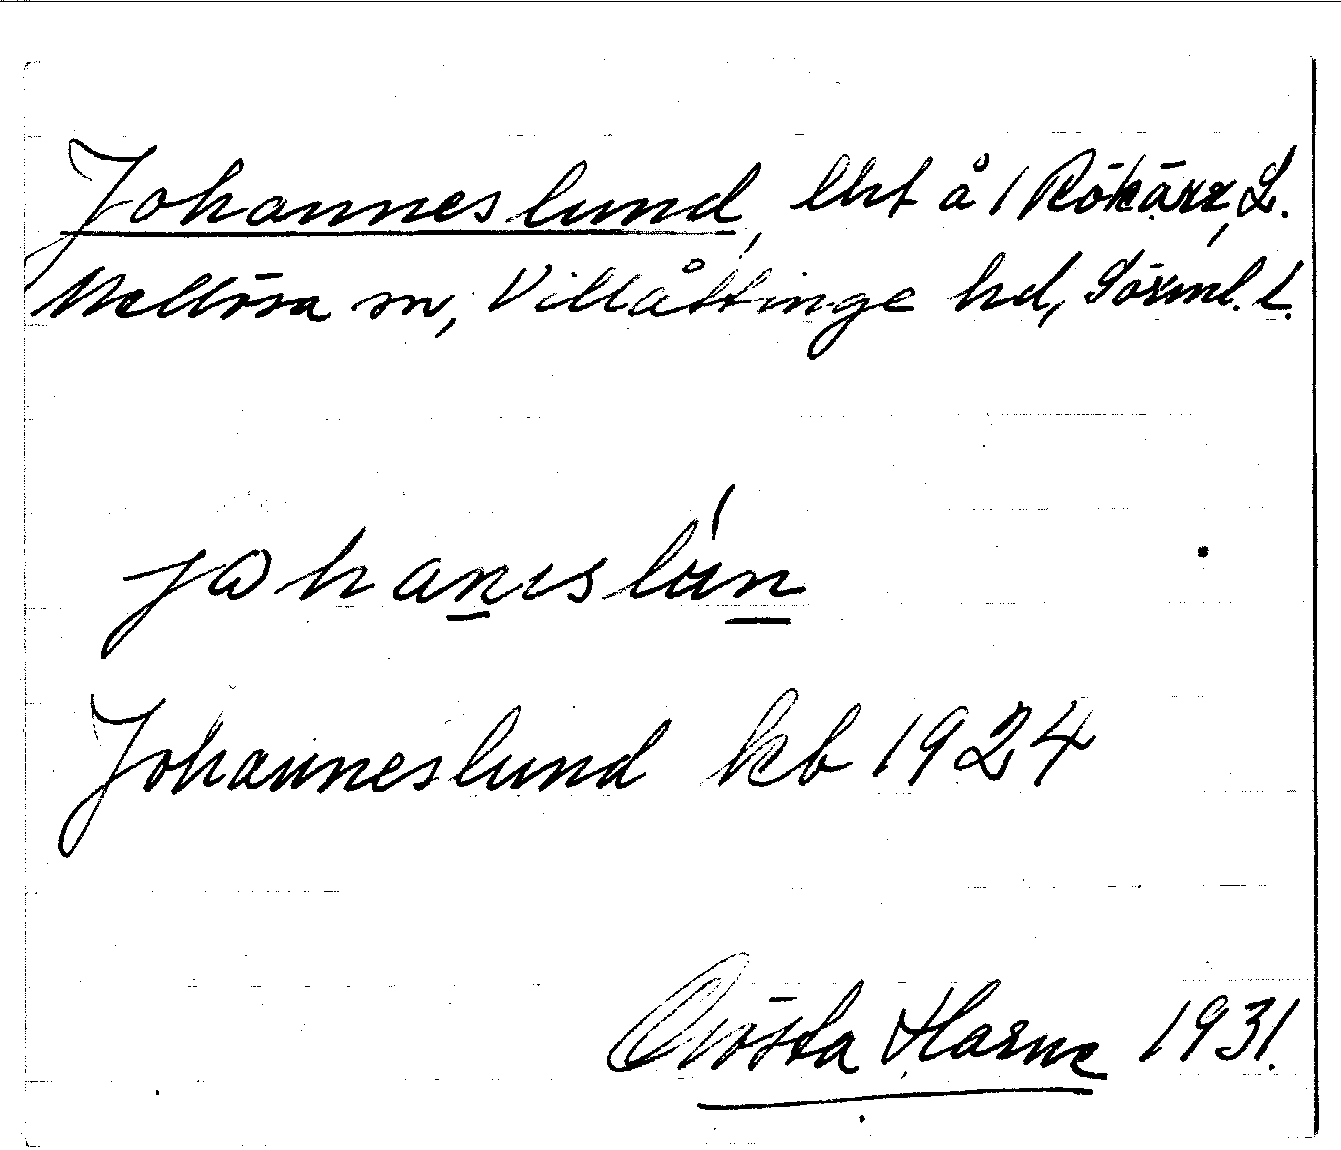 Johanneslund, lht å 1 Rökärr, L.
Mellösa sn, Villåttinge hd, Söxml. l.
johaneslún
Johanneslund kb 1924
Gösta Harne 1931.